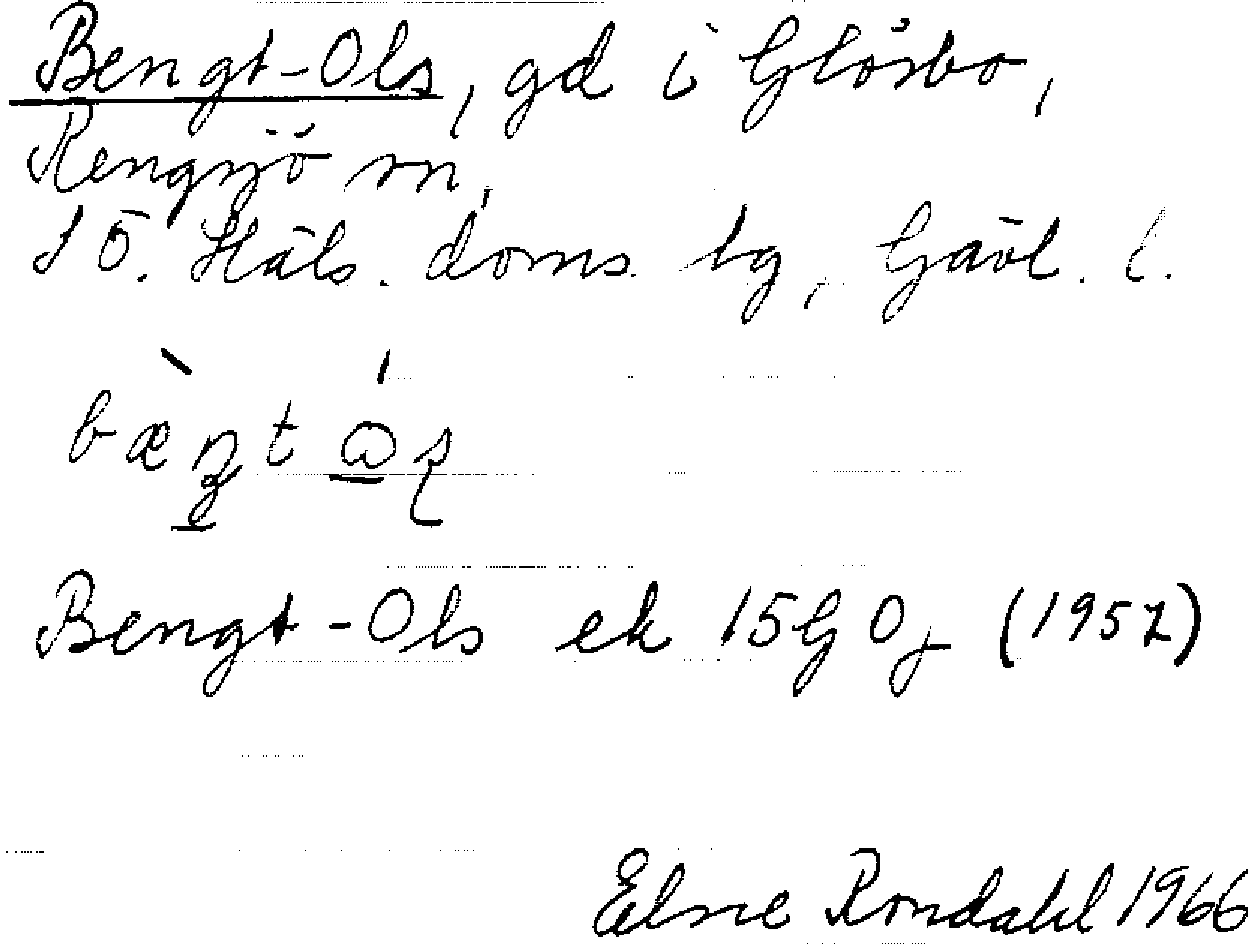 Bengt-Ols, gd i Glösbo,
Rengsjö sn,
SÖ. Häls. doms. tg, Gävl. l.
Bengt-Ols ek 15G 0j (1957)
Elsie Rondahl 1966